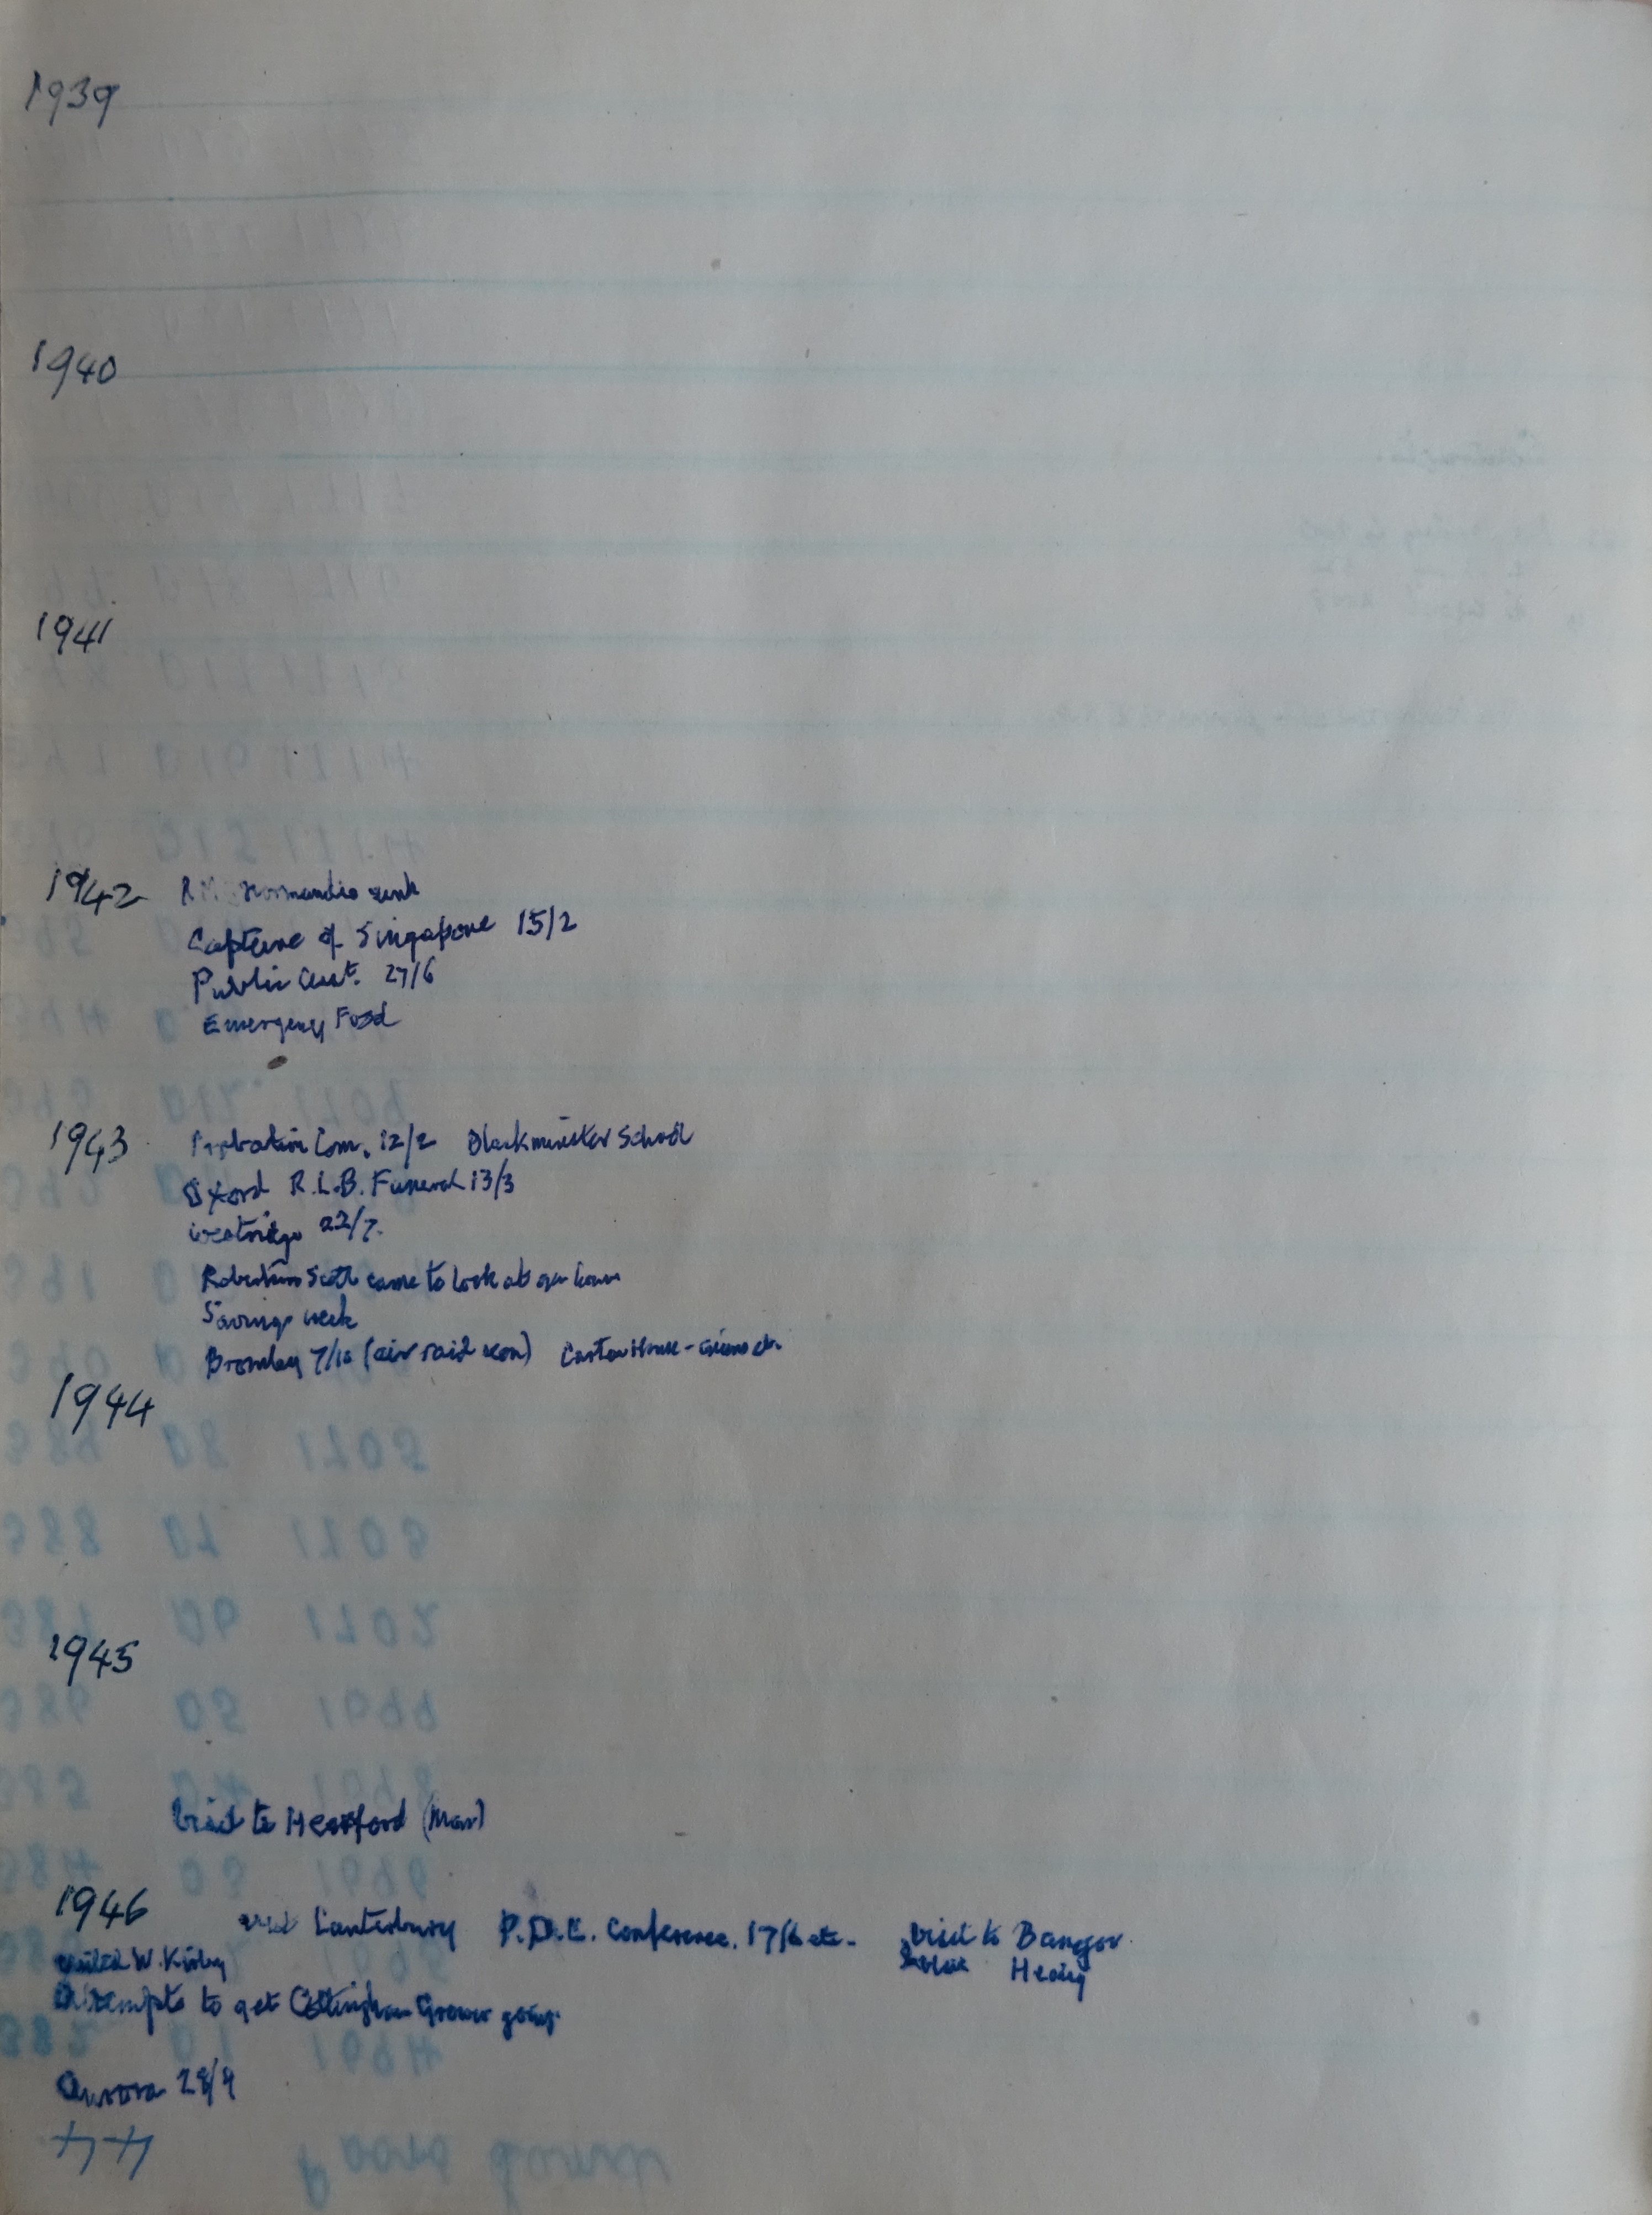 1939
1940
1941
1942 Normandie sunk
Capture of Singapore 15/2
Public 27/6
Emergency Food
1943 Probation Com. 12/2 Blackminster School
Oxford R.L.B. Funeral 13/3
22/7.
Scott came to look at our house
Savings week
Bromley 7/10 (air raid) House -
1944
1945
Visit to Hertford (Mar)
1946 visit Canterbury Conference. 17/6 etc. Visit to Bangor
visited W. Kirby
Attempts to get Cottingham Grower going.
Aurora 28/9
44